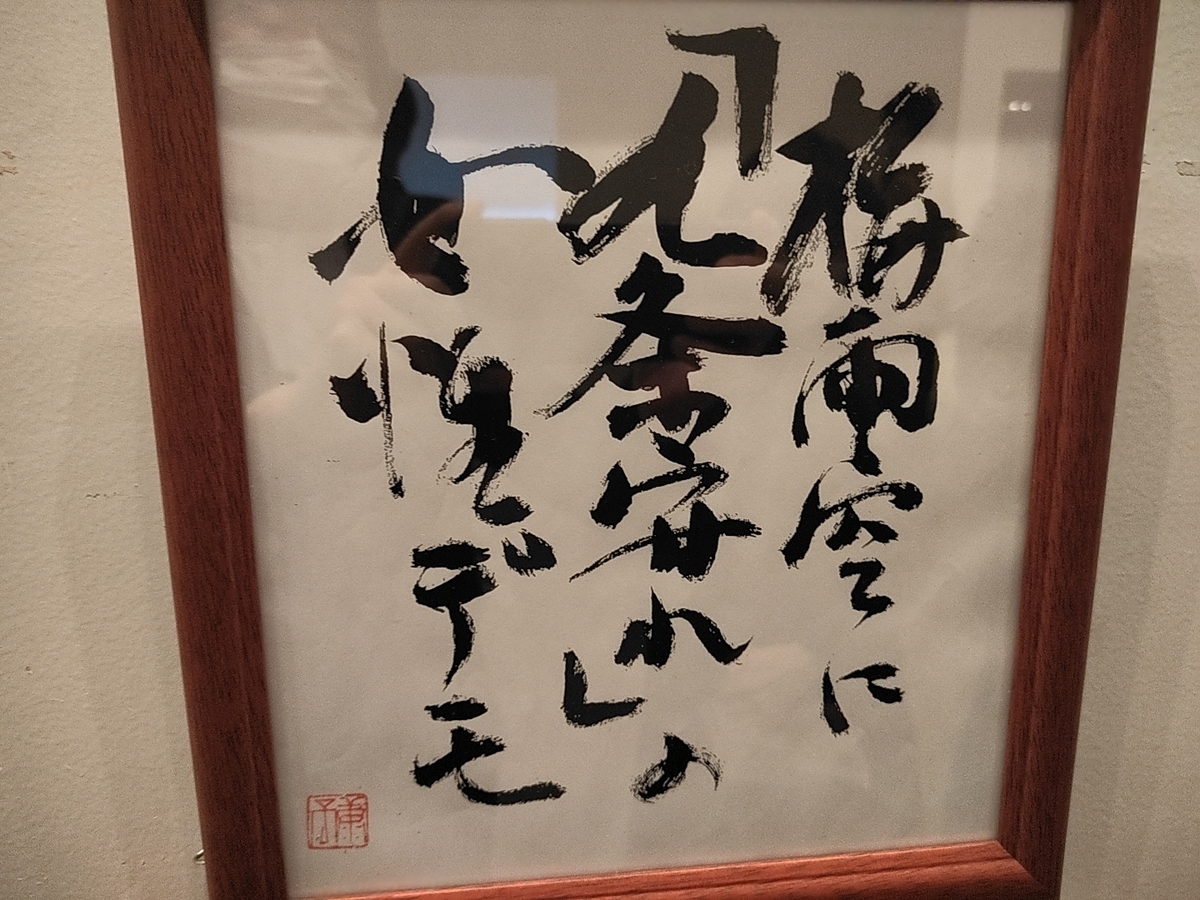 梅雨空に
「九条守れ」の
女性デモ